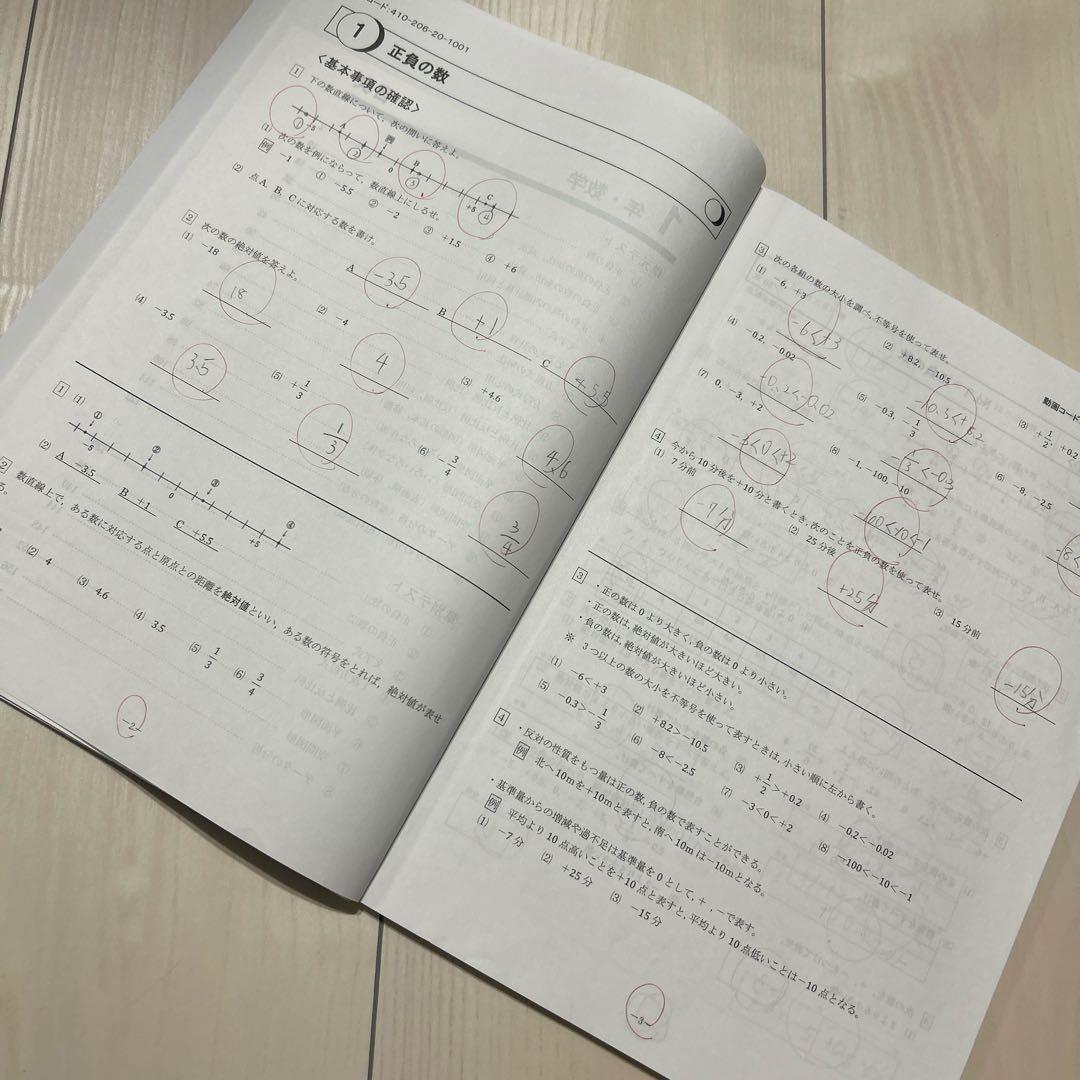 コード:410-206-20-1001
1 正負の数
〈基本事項の確認〉
1 下の数直線について、次の問いに答えよ。
A 例 B C
① -5 ② 0 ③ +5 ④
(1) 次の数を例にならって、数直線上にしるせ。
例 -1 ① -5.5 ② -2 ③ +1.5 ④ +6
(2) 点A, B, Cに対応する数を書け。
A -3.5 B +1 C +5.5
2 次の数の絶対値を答えよ。
(1) -18 (2) -4 (3) +4.6
18 4 4.6
(4) -3.5 (5) +1/3 (6) -3/4
3.5 1/3 3/4
1 (1) ① ② ③ ④
-5 0 +5
(2) A -3.5 B +1 C +5.5
2 数直線上で、ある数に対応する点と原点との距離を絶対値といい、ある数の符号をとれば、絶対値が表せ
る。
(2) 4 (3) 4.6 (4) 3.5 (5) 1/3 (6) 3/4
-2-
動画コード
3 次の各組の数の大小を調べ、不等号を使って表せ。
(1) -6, +3 (2) +8.2, -10.5 (3) +1/2, +0.2
-6<+3 -10.5<+8.2
(4) -0.2, -0.02 (5) -0.3, -1/3 (6) -8, -2.5
-0.2<-0.02 -1/3<-0.3 -8<
(7) 0, -3, +2 (8) -1, -100, -10
-3<0<+2 -100<-10<-1
4 今から10分後を+10分と書くとき、次のことを正負の数を使って表せ。
(1) 7分前 (2) 25分後 (3) 15分前
-7分 +25分 -15分
3 ・正の数は0より大きく、負の数は0より小さい。
・正の数は、絶対値が大きいほど大きい。
・負の数は、絶対値が大きいほど小さい。
※ 3つ以上の数の大小を不等号を使って表すときは、小さい順に左から書く。
(1) -6<+3 (2) +8.2>-10.5 (3) +1/2>+0.2 (4) -0.2<-0.02
(5) -0.3>-1/3 (6) -8<-2.5 (7) -3<0<+2 (8) -100<-10<-1
4 ・反対の性質をもつ量は正の数、負の数で表すことができる。
例 北へ10mを+10mと表すと、南へ10mは-10mとなる。
・基準量からの増減や過不足は基準量を0として、+, -で表す。
例 平均より10点高いことを+10点と表すと、平均より10点低いことは-10点となる。
(1) -7分 (2) +25分 (3) -15分
-3-